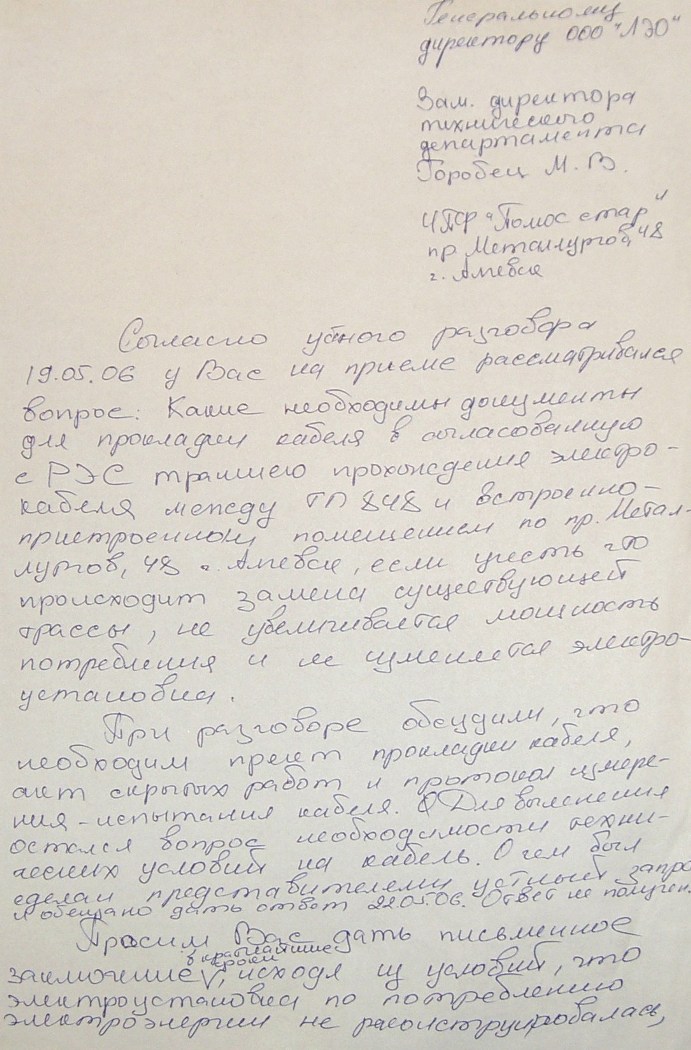 Генеральному
директору ООО "ЛЭО"
Зам. директора
технического
департамента
Горобец М. В.
ЧПФ "Полюс стар"
пр. Металлургов, 48
г. Алчевск
Согласно устного разговора
19.05.06 у Вас на приеме рассматривался
вопрос: Какие необходимы документы
для прокладки кабеля в согласованную
с РЭС траншею прохождения электро-
кабеля между ТП 848 и встроенно-
пристроенным помещением по пр. Метал-
лургов, 48 г. Алчевск, если учесть что
происходит замена существующей
трассы, не увеличивается мощность
потребления и не изменяется электро-
установка.
При разговоре обсудили, что
необходим проект прокладки кабеля,
акт скрытых работ и протокол измере-
ния - испытания кабеля. Для выяснения
остался вопрос необходимости техни-
ческих условий на кабель. О чем был
сделан представителем устный запрос
и обещано дать ответ 22.05.06. Ответ не получен.
Просим Вас дать письменное
в кратчайшие
сроки
заключение, исходя из условий, что
электроустановка по потреблению
электроэнергии не реконструировалась,